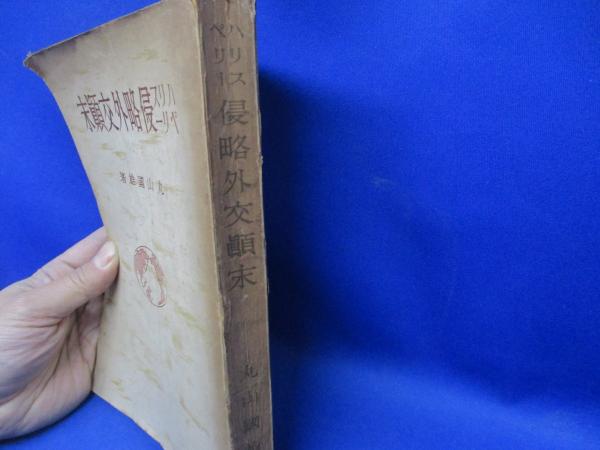 ハリス
ペリー
侵略外交顚末
丸山國雄著
ハリス
ペリー
侵略外交顚末
丸山國